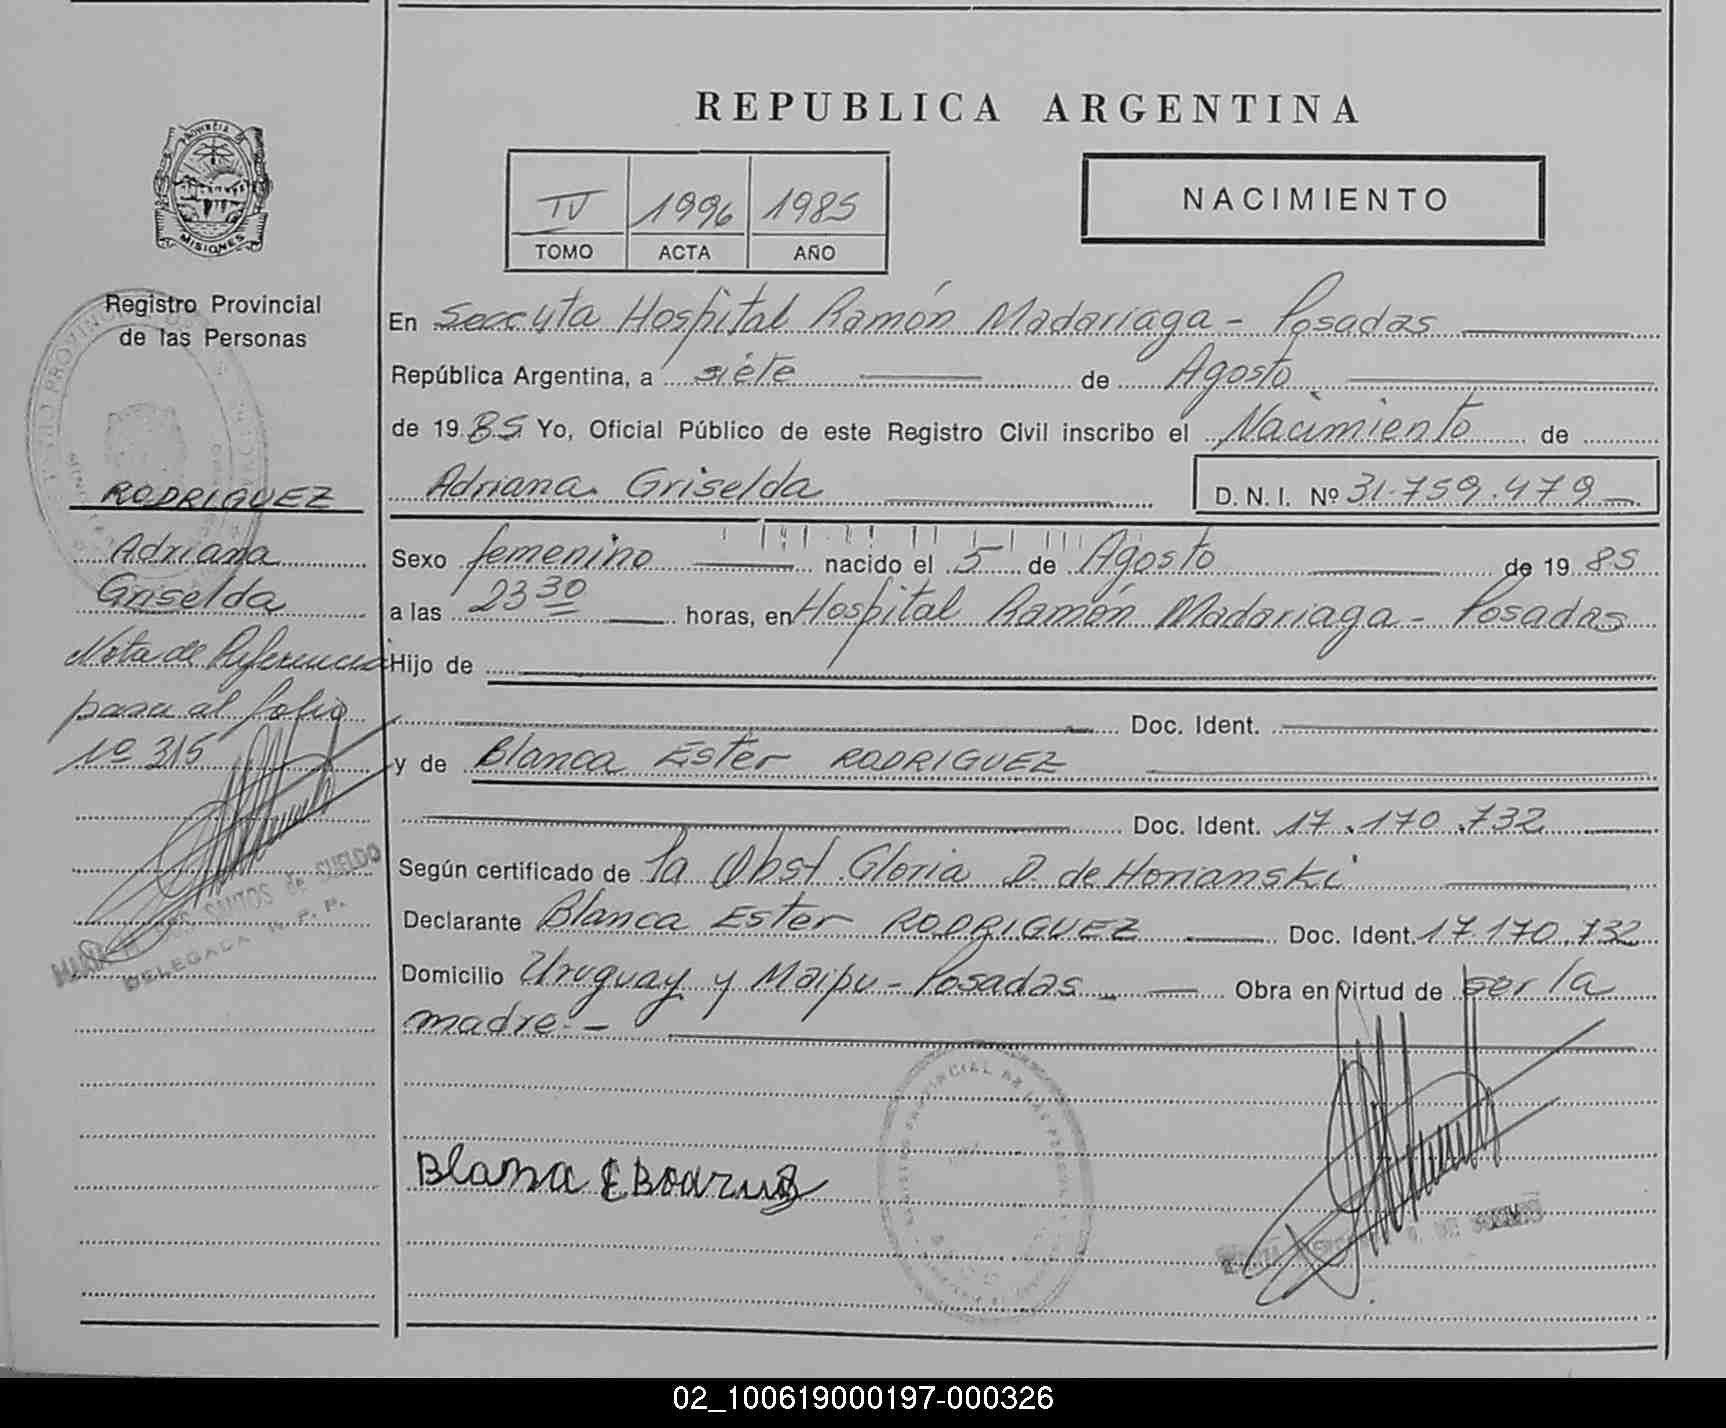 REPUBLICA ARGENTINA
PROVINCIA DE
MISIONES
IV 1996 1985
TOMO ACTA AÑO
NACIMIENTO
Registro Provincial
de las Personas
RODRIGUEZ
Adriana
Griselda
Nota de Referencia
pasa al folio
Nº 315
SANTOS de SUELDO
DELEGADA R. P. P.
En Secc yta Hospital Ramón Madariaga - Posadas
República Argentina, a siete de Agosto
de 1985 Yo, Oficial Público de este Registro Civil inscribo el Nacimiento de
Adriana Griselda D. N. I. Nº 31.759.479
Sexo femenino nacido el 5 de Agosto de 1985
a las 23 30 horas, en Hospital Ramón Madariaga - Posadas
Hijo de
Doc. Ident.
y de Blanca Ester RODRIGUEZ
Doc. Ident. 17.170.732
Según certificado de la Obst. Gloria D. de Horianski
Declarante Blanca Ester RODRIGUEZ Doc. Ident. 17.170.732
Domicilio Uruguay y Maipu - Posadas Obra en virtud de ser la
madre. -
Blanca E
DE SUELDO
02_100619000197-000326